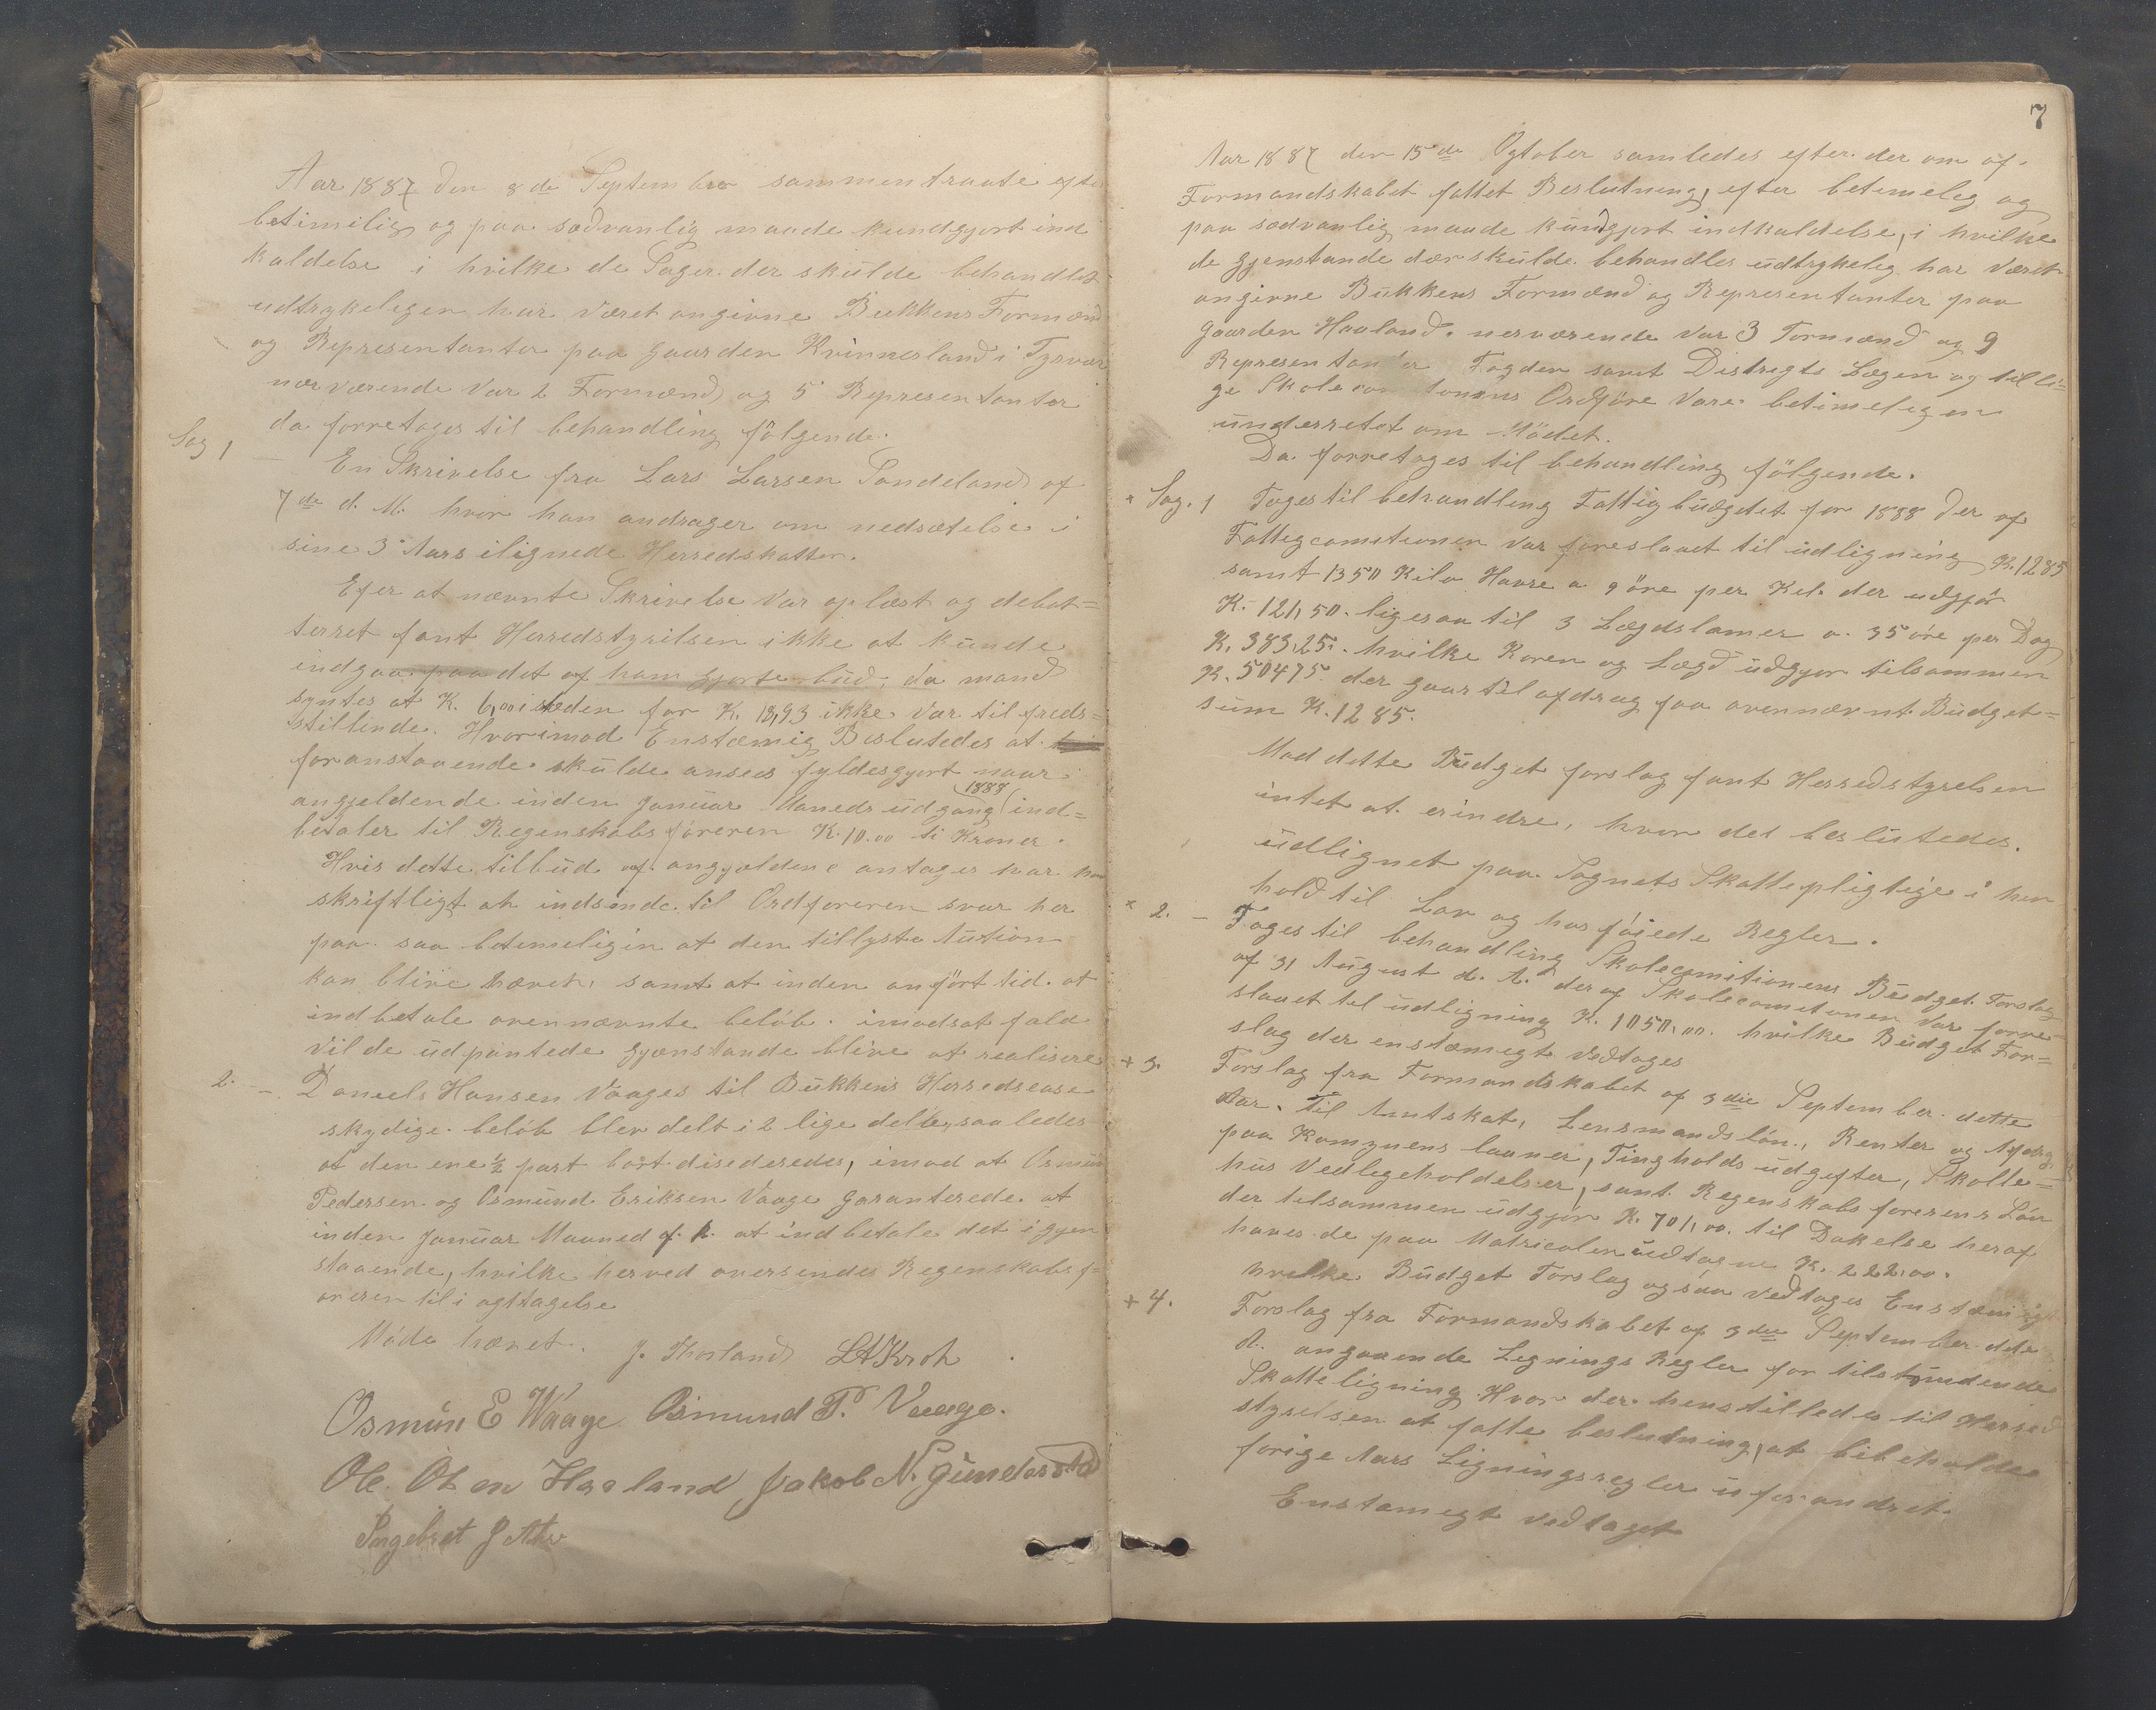 Aar 1887 den 8de September sammentraate efter
betimilig og paa sædvanlig maade kundgjort ind
kaldelse i hvilke de Sager der skulde behandles
udtrykeligen har været angivne Bukkens Formænd
og Representanter paa Gaarden Kvinnesland i Tysvær
nærværende Var 2 Formænd og 5 Representanter
da forretoges til behandling følgende.
Sag 1 — En Skrivelse fra Lars Larsen Sandeland af
7de d. M. hvor han andrager om nedsætelse i
sine 3 Aars ilignede Herredskatter.
Efer at nævnte Skrivelse Var oplæst og debat=
terret fant Herredstyrilsen ikke at kunde
indgaa paa det af ham gjorte bud, da mand
syntes at K. 6,00 isteden for K. 18,93 ikke Var til freds=
stillende. Hvorimod Enstæmig Beslutedes at
foranstaaende skulde ansees fyldesgjort naar
angjeldende inden Januar Maaneds udgang 1888 ind=
betaler til Regenskabsføreren K. 10.00 ti Kroner.
Hvis dette tilbud af angjældene antages har han
skriftligt at indsende til Ordføreren svar her
paa saa betemeligin at den tillyste Aution
kan blive hævet, samt at inden anført tid at
indbetale ovennævnte beløb. imodsat fald
Vil de udpantede Gjænstande blive at realisere
2. — Daneels Hansen Vaages til Bukkens Herredscase
skydige beløb blev delt i 2 lige deller, saaledes
at den ene ½ part bort disederedes, imod at Osmun
Pedersen og Osmund Eriksen Vaage garanterede at
inden Januar Maaned f. k. at indbetale det igjen
staaende, hvilke herved oversendes Regenskabsf=
øreren til i agttagelse
Møde hævet. J. Thorland LA Kroh
Osmun E Waage. Osmund P. Vaage.
Ole. Olsen Haaland Jakob N. Gundersstad
Ingebret J
7
Aar 1887 den 15de Ogtober samledes efter der om af
Formandskabet fattet Beslutning, efter betimeleg og
paa sædvanlig maade kundgjort indkaldelse, i hvilke
de Gjenstande der skulde behandles udtrykeleg har Været
angivne Bukkens Formænd og Representanter paa
Gaarden Haaland. nerværende Var 3 Formænd og 9
Representanter Fogden samt Distrigts Lægen og tilli=
ge Ordføre Vare betimelegen
underretet om Mødet.
Da forretoges til behandling følgende.
× Sag. 1 Toges til behandling Fattigbudgetet for 1888 der af
Fattigcomitionen Var foreslaaet til udligning K. 1285
samt 1350 Kilo Havre a 9 öre per Kil. der udgjör
K. 121,50. ligesaa til 3 Lægdslamer a. 35 öre per Dag
K. 383,25. hvilke Koren og Lægd udgjør tilsammen
K. 50475. der gaar til afdrag paa ovennævnt Budget=
sum K. 1285.
Mod dette Budget forslag fant Herredstyrelsen
intet at erindre, hvor det beslutedes.
udlignet paa Sognets Skattepligtige i hen
hold til Lov og hosføiede Regler.
× 2. — Toges til behandling Skolecomitionens Budget Forslag
af 31 August d. A. der af Skolecometionen Var forre=
slaaet til udligning K. 1050,00. hvilke Budget For=
slag der enstæmegt Vedtoges
+ 3. Forslag fra Formandskabet af 3die September dette
Aar. Til Amtskat, Lensmandsløn, Renter og Afdrag
paa Komynens laaner, Tingholds udgifter, Skolle=
hus Vedlegeholdelser, samt Regenskabsførerens Løn
der telsammen udgjør K. 701,00. til Dækelse heraf
haves de paa Matricelen udtagne K. 222,00.
hvelke Budget Forslag ogsaa Vedtoges Enstæmig
+ 4. Forslag fra Formandskabet af 3die September dete
A. angaaende Legnings Regler for tilstundende
Skatteligning Hvor der henstilledes til Herred
styrelsen at fatte beslutning, at bibeholde
forige Aars Ligningsregler uforandret.
Enstamegt Vedtaget